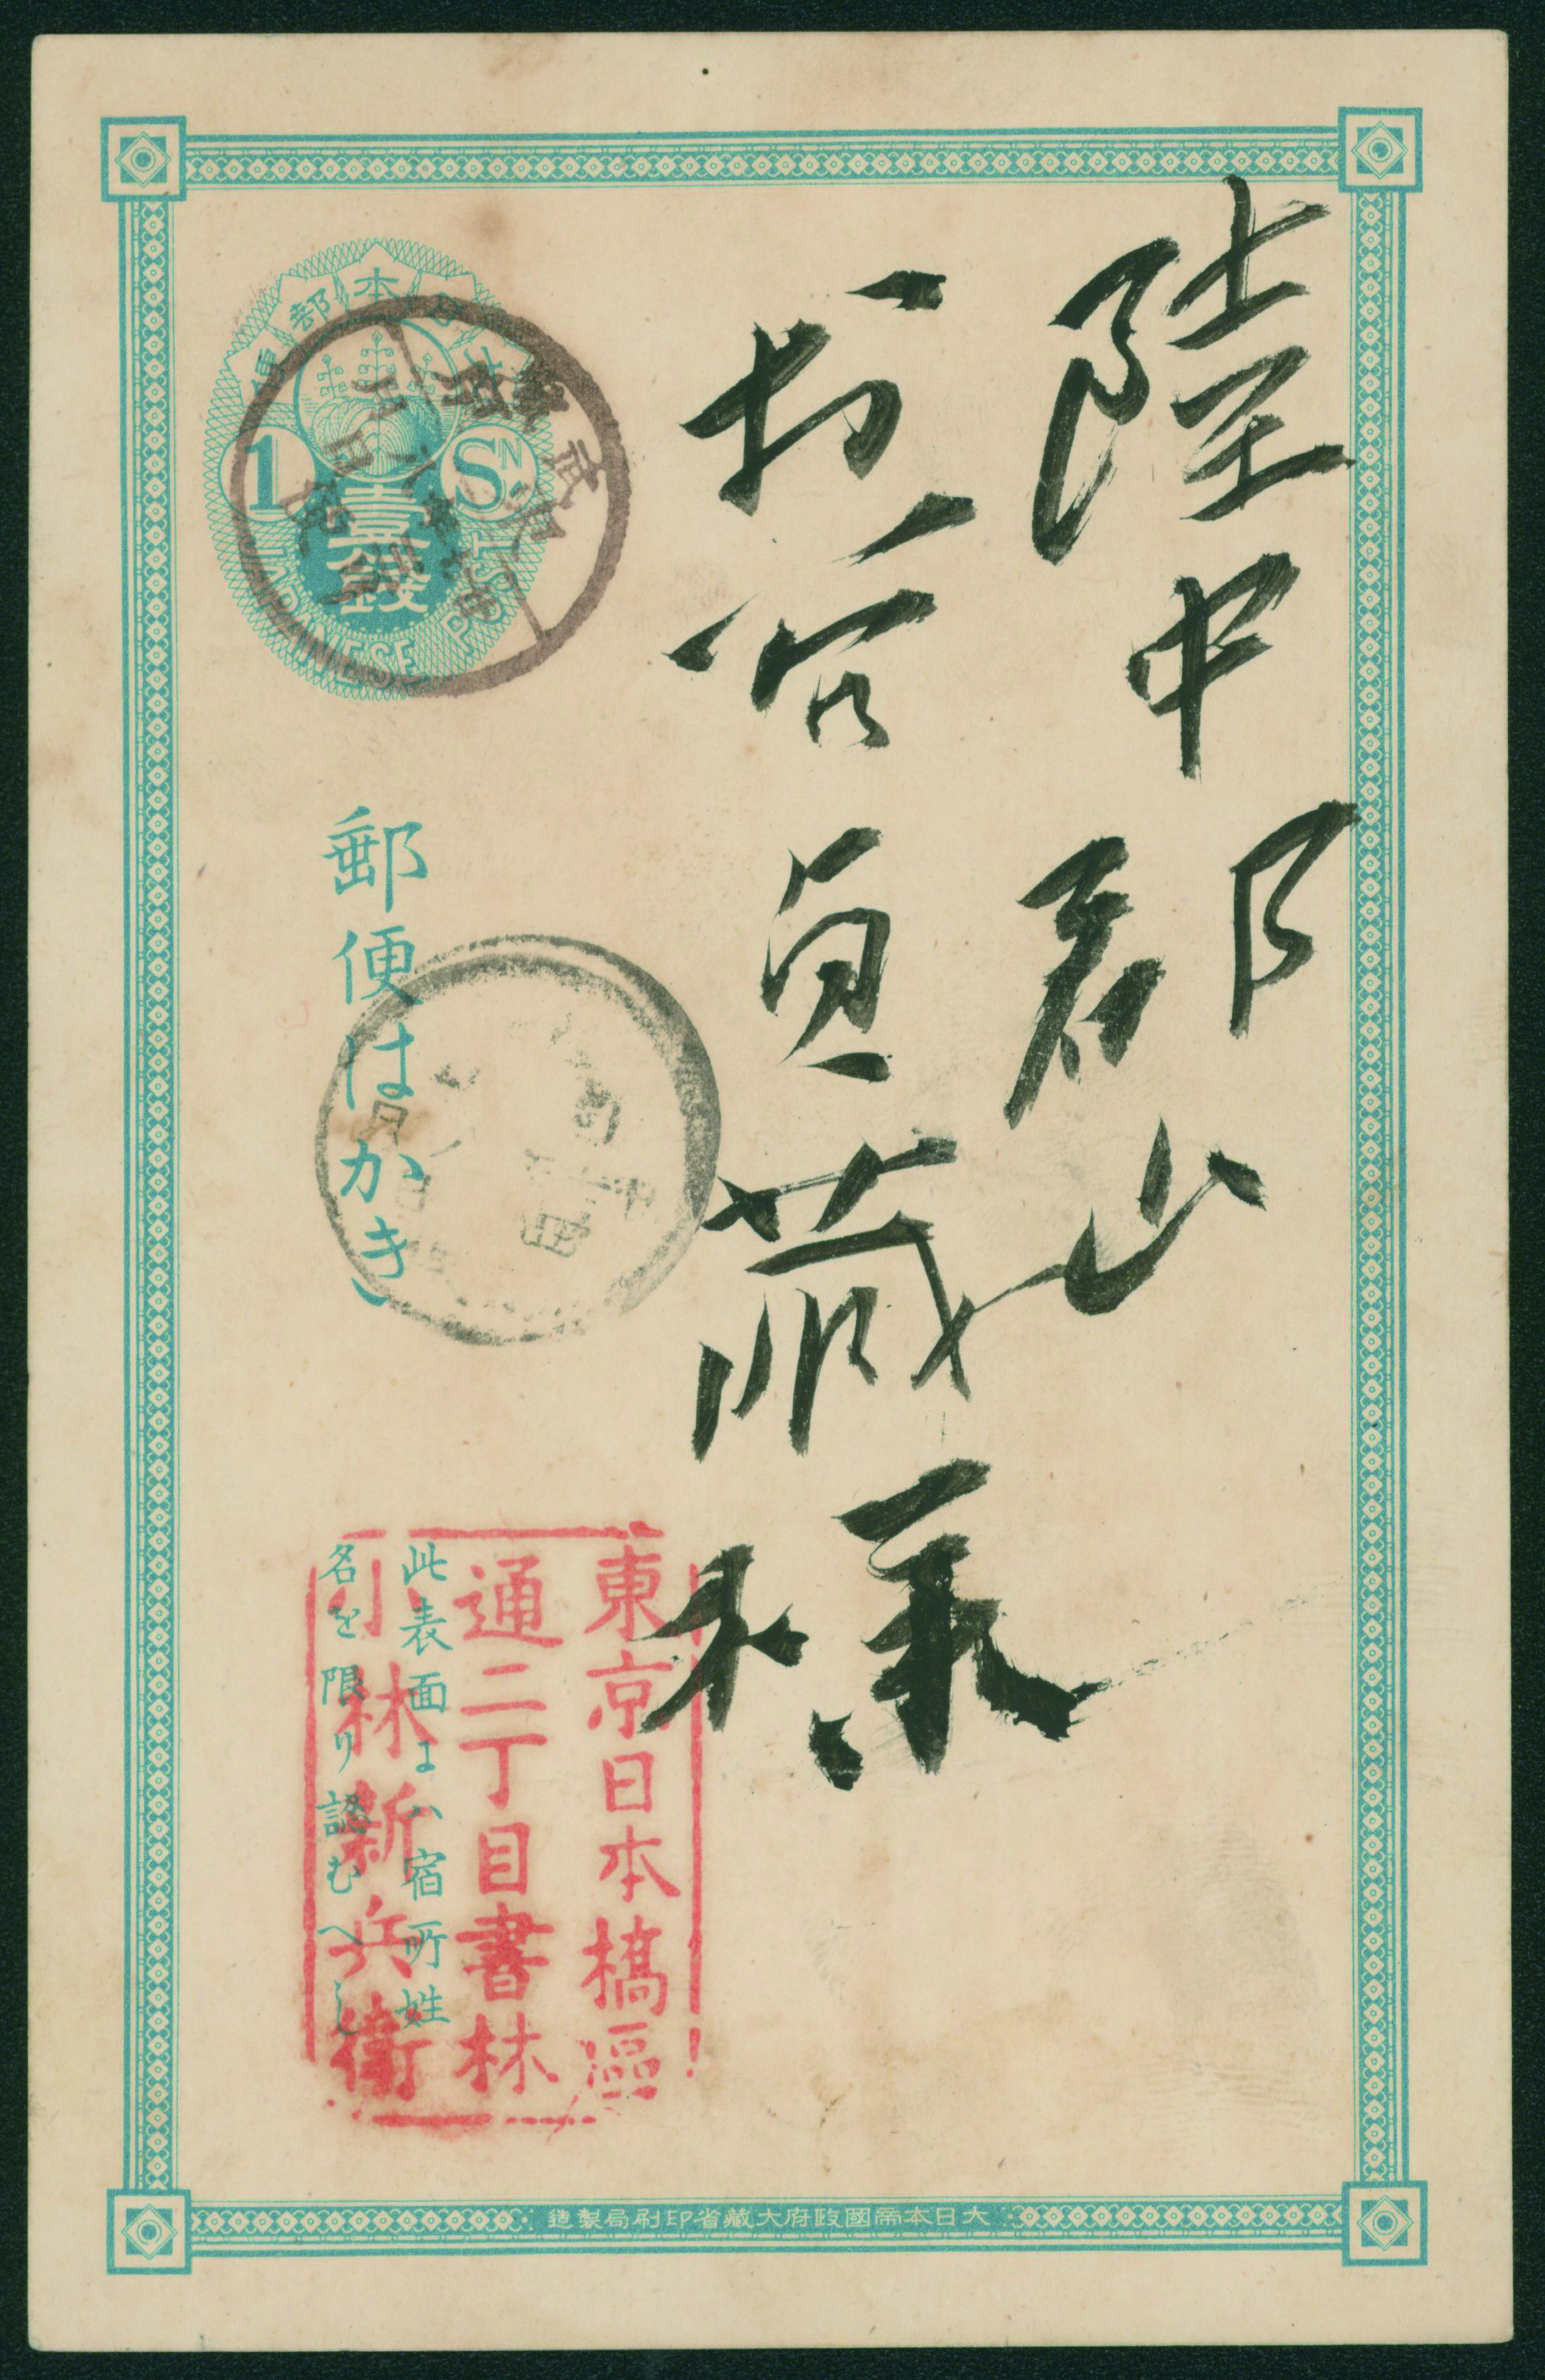 陸中郡山
貞蔵様
大日本郵便
1 SN
壹錢
JAPANESE POST
郵便はかき
東京日本橋區
通二丁目書林
小林新兵衛
此表面にハ宿所姓
名を限り認むへし
大日本帝國政府大藏省印刷局製造